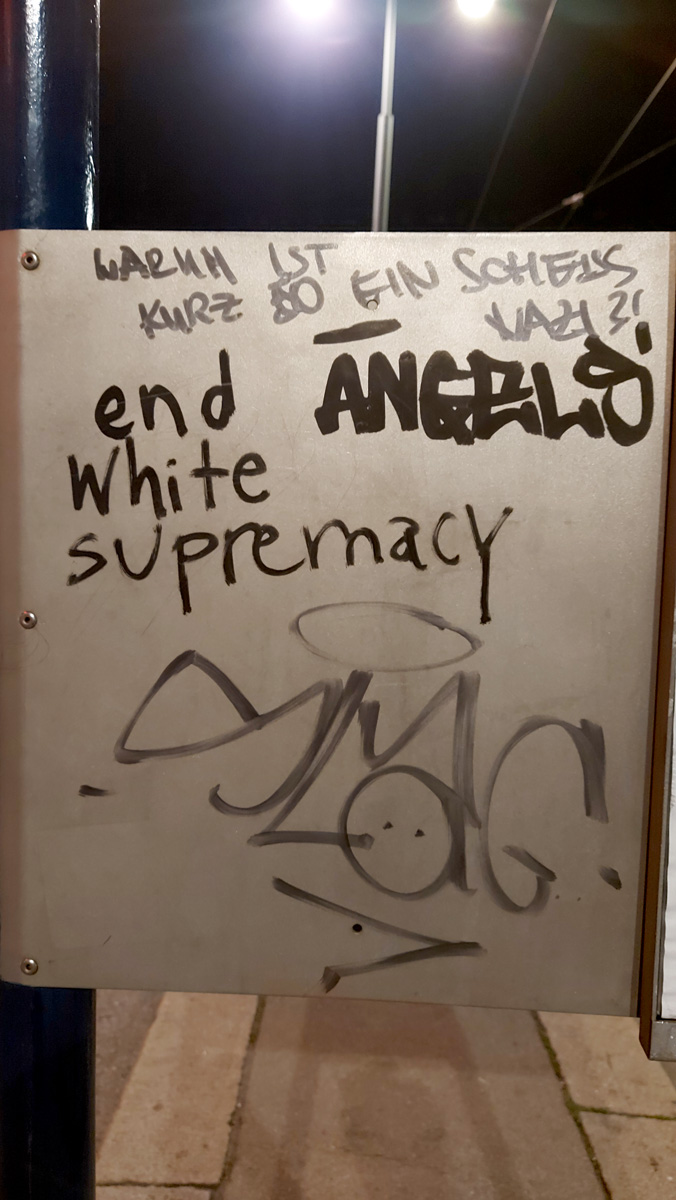 WARUM IST EIN SCHEISS
KURZ SO NAZI?!
ANGELS
end
white
supremacy